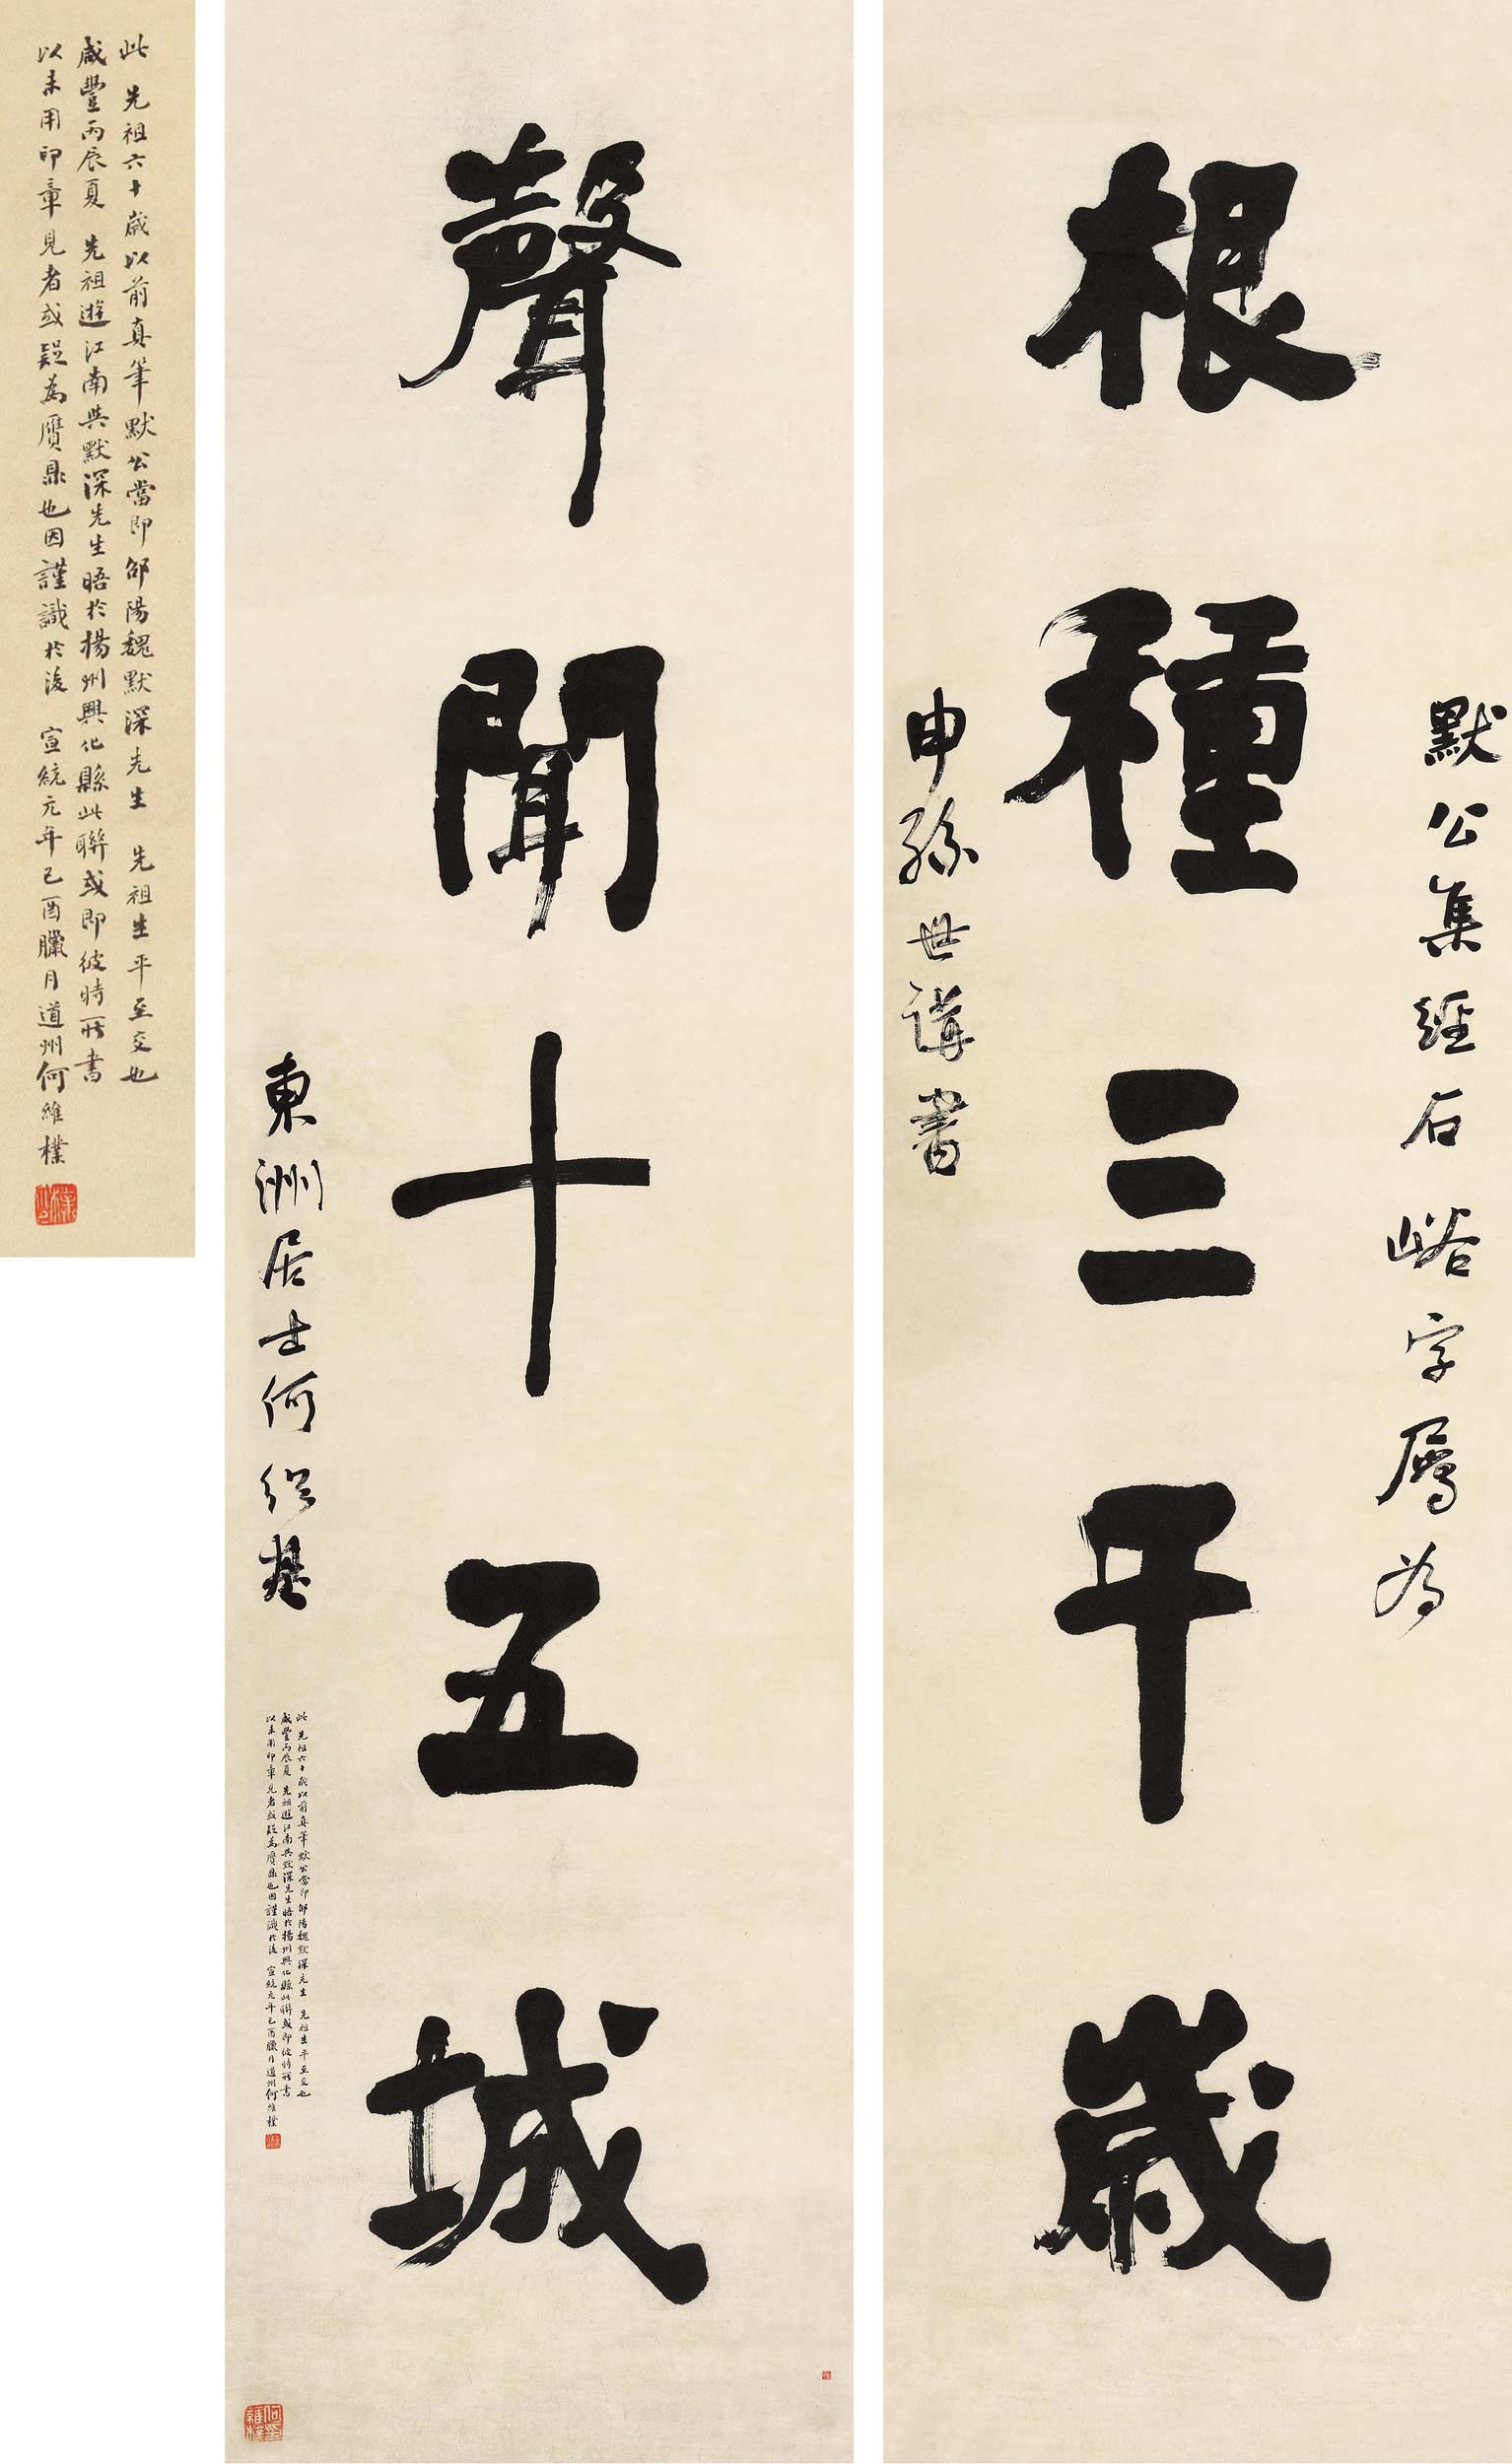 根種三千歲
默公集經石峪字屬為
申孫世講書
聲聞十五城
東洲居士何紹基
此 先祖六十歲以前真筆默公當即邵陽魏默深先生 先祖生平至交也
咸豐丙辰夏 先祖遊江南與默深先生晤於揚州興化縣此聯或即彼時所書
以未用印章見者或疑為贗鼎也因謹識於後 宣統元年己酉臘月道州何維樸
此 先祖六十歲以前真筆默公當即邵陽魏默深先生 先祖生平至交也
咸豐丙辰夏 先祖遊江南與默深先生晤於揚州興化縣此聯或即彼時所書
以未用印章見者或疑為贗鼎也因謹識於後 宣統元年己酉臘月道州何維樸